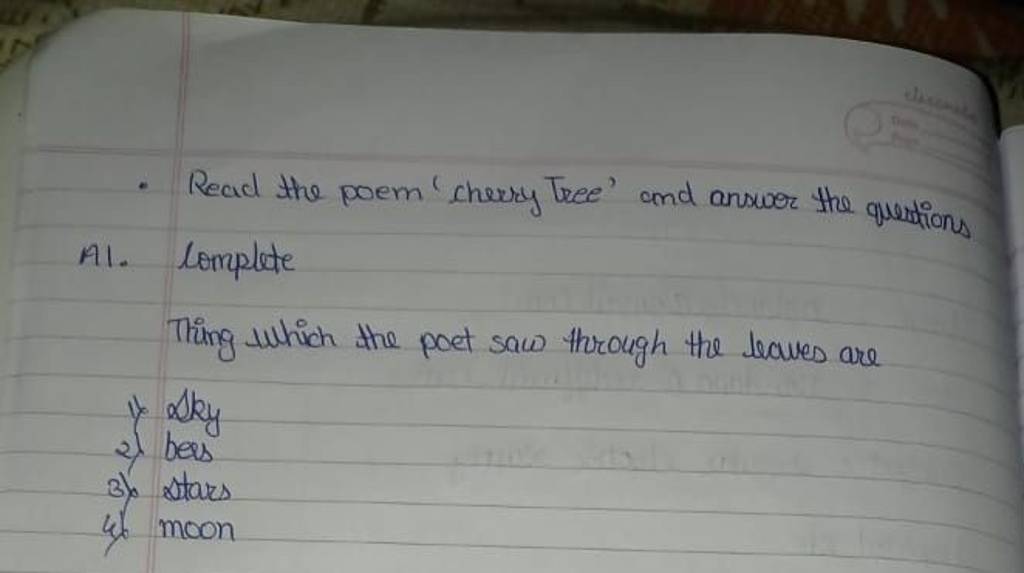 classmate
Date
Page
• Read the poem ‘cherry Tree’ and answer the questions
A1. Complete
Thing which the poet saw through the leaves are
1) Sky
2) bees
3) stars
4) moon